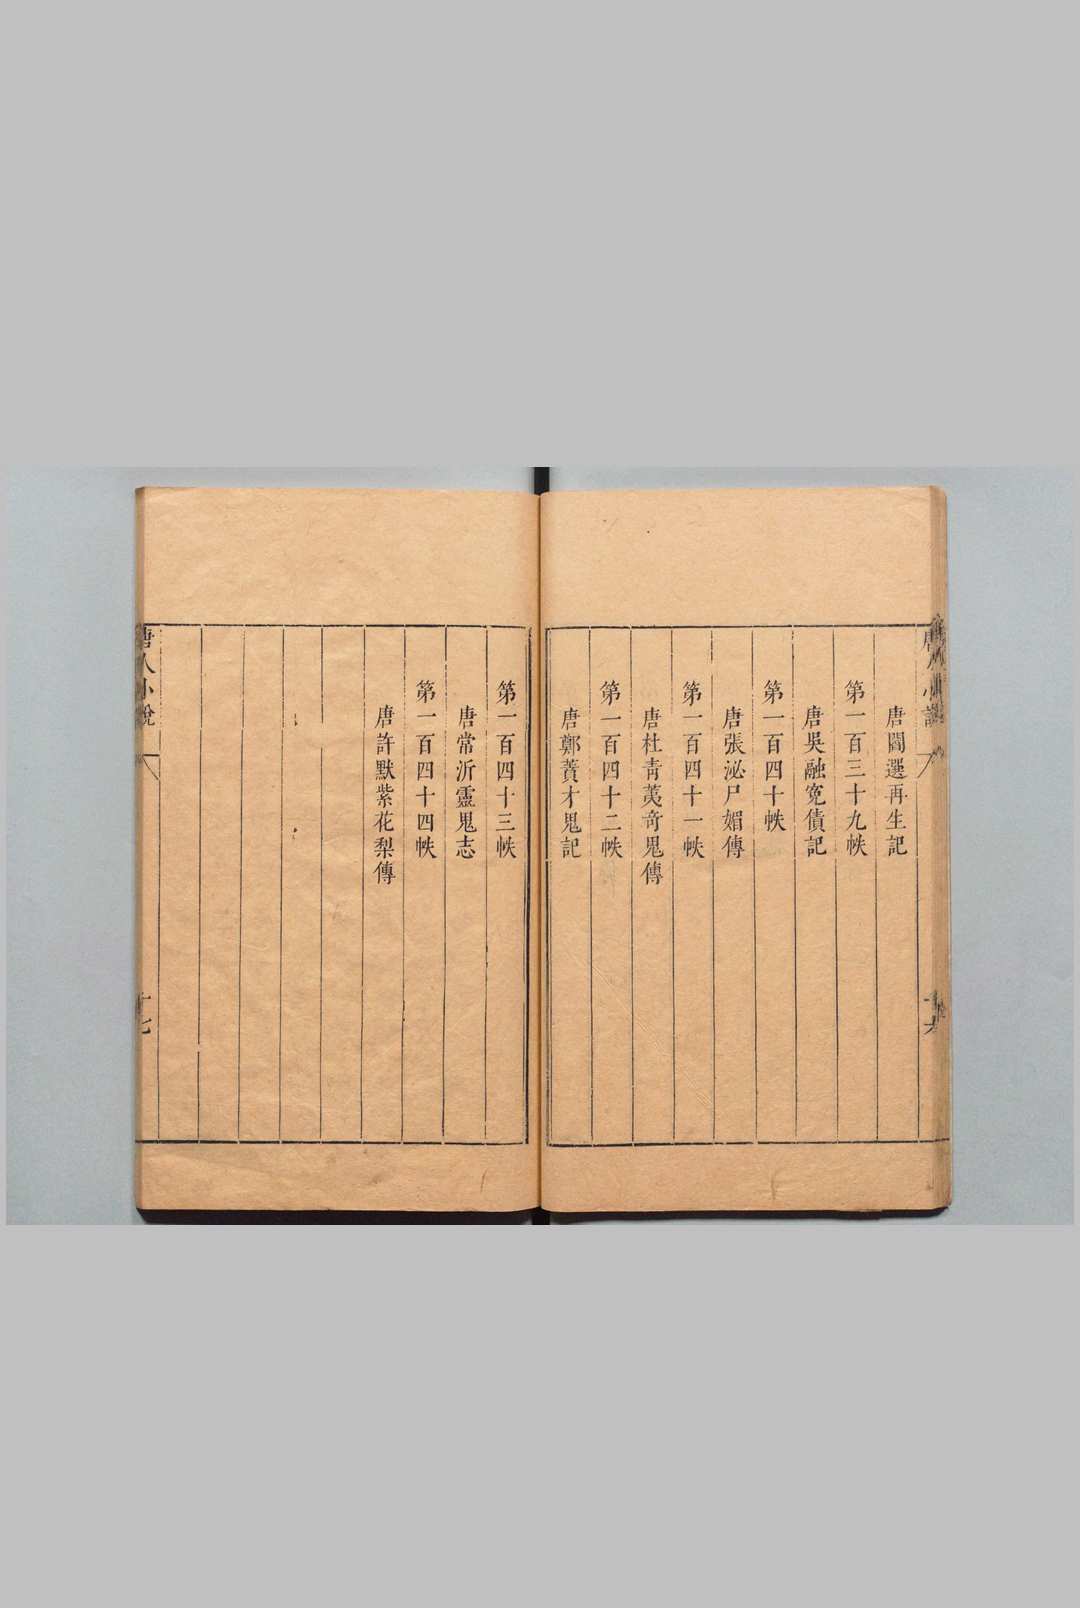 唐閻選再生記
第一百三十九帙
唐吳融寃債記
第一百四十帙
唐張泌尸媚傳
第一百四十一帙
唐杜青荑竒鬼傳
第一百四十二帙
唐鄭蕡才鬼記
第一百四十三帙
唐常沂靈鬼志
第一百四十四帙
唐許默紫花梨傳
唐人小說
十七